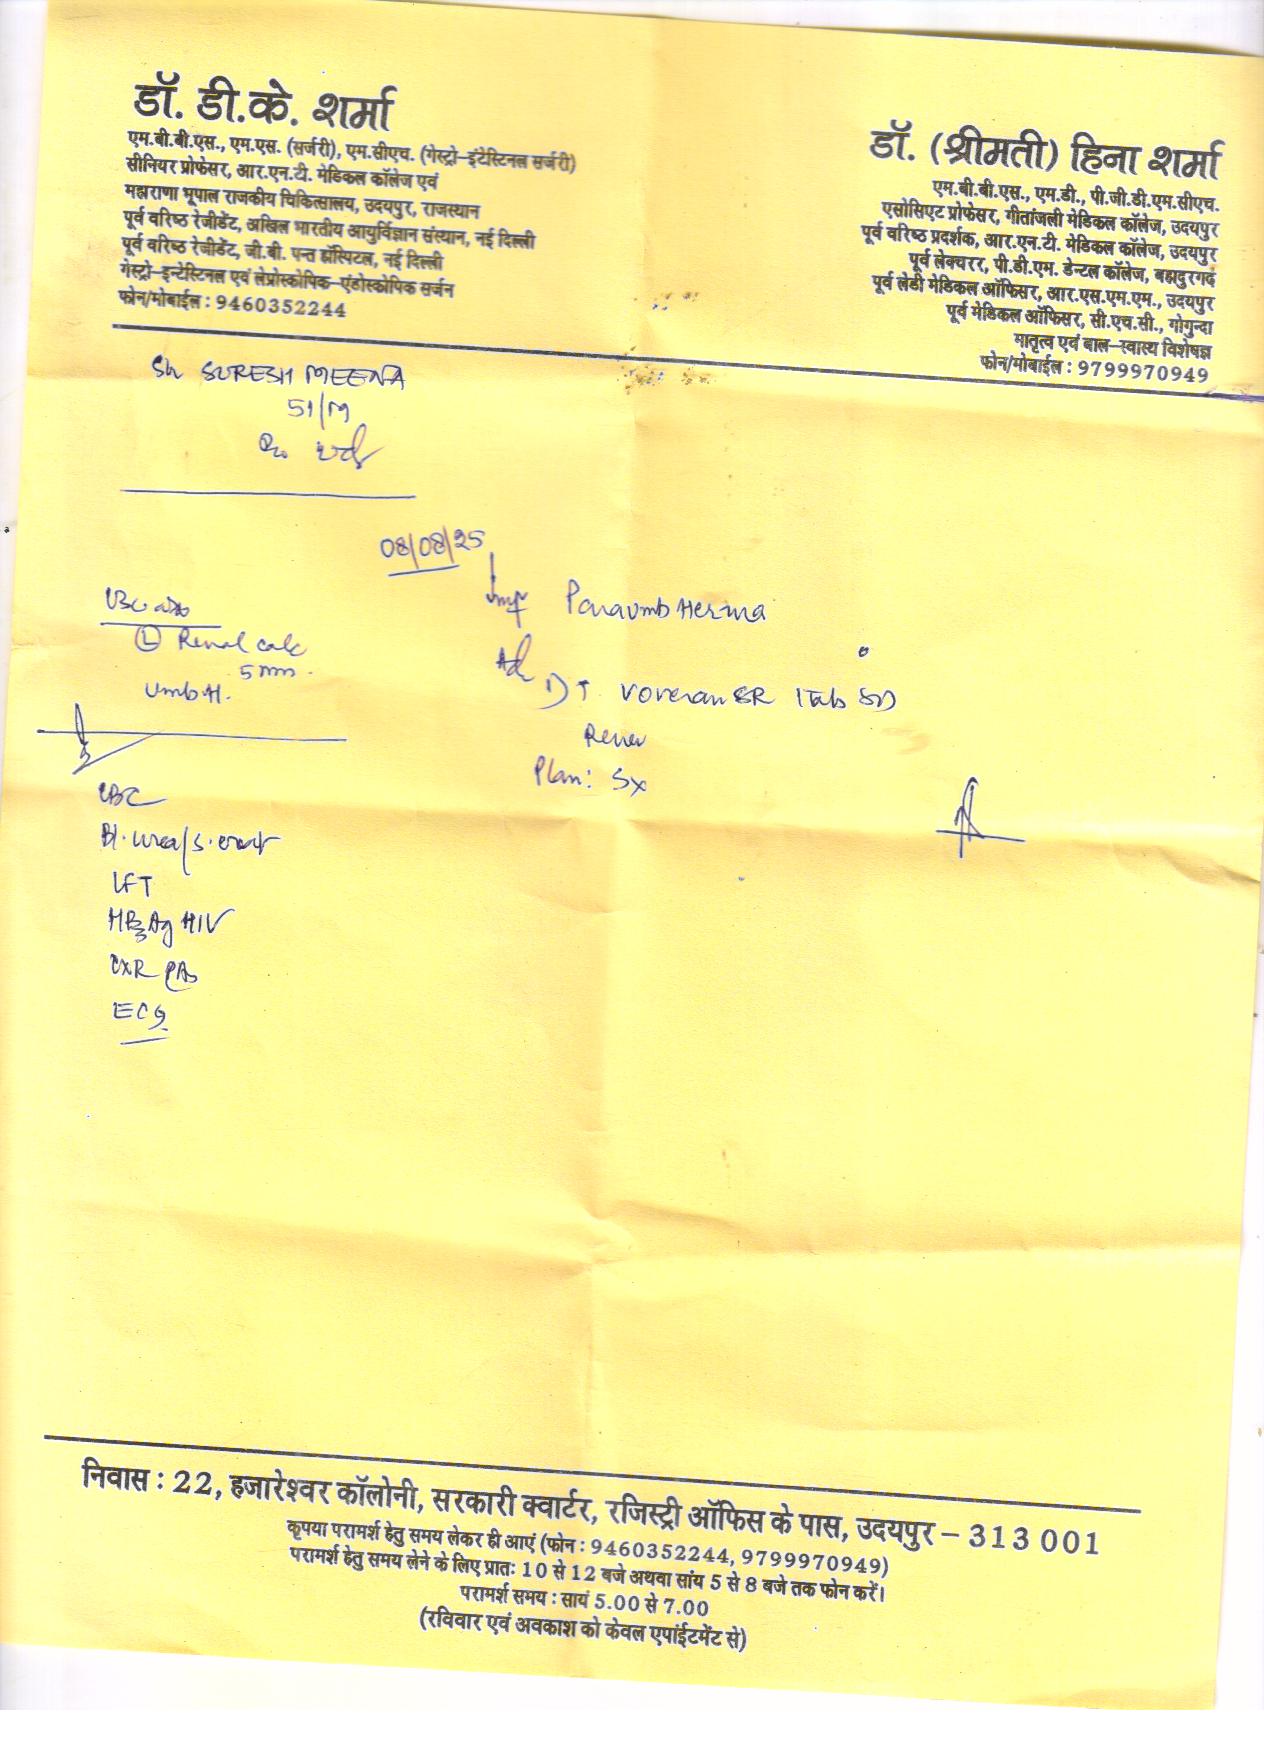 डॉ. डी.के. शर्मा
एम.बी.बी.एस., एम.एस. (सर्जरी), एम.सीएच. (गेस्ट्रो-इंटेस्टिनल सर्जरी)
सीनियर प्रोफेसर, आर.एन.टी. मेडिकल कॉलेज एवं
महाराणा भूपाल राजकीय चिकित्सालय, उदयपुर, राजस्थान
पूर्व वरिष्ठ रेजीडेंट, अखिल भारतीय आयुर्विज्ञान संस्थान, नई दिल्ली
पूर्व वरिष्ठ रेजीडेंट, जी.बी. पन्त हॉस्पिटल, नई दिल्ली
गेस्ट्रो-इन्टेस्टिनल एवं लेप्रोस्कोपिक-एंडोस्कोपिक सर्जन
फोन/मोबाईल : 9460352244
डॉ. (श्रीमती) हिना शर्मा
एम.बी.बी.एस., एम.डी., पी.जी.डी.एम.सीएच.
एसोसिएट प्रोफेसर, गीतांजली मेडिकल कॉलेज, उदयपुर
पूर्व वरिष्ठ प्रदर्शक, आर.एन.टी. मेडिकल कॉलेज, उदयपुर
पूर्व लेक्चरर, पी.डी.एम. डेन्टल कॉलेज, बहादुरगढ़
पूर्व लेडी मेडिकल ऑफिसर, आर.एस.एम.एम., उदयपुर
पूर्व मेडिकल ऑफिसर, सी.एच.सी., गोगुन्दा
मातृत्व एवं बाल-स्वास्थ्य विशेषज्ञ
फोन/मोबाईल : 9799970949
Sh SURESH MEENA
51/M
08/08/25
Imp Paraumb Hernia
Ad
1) T Voveran SR 1 Tab SD
Plan: Sx
(L) Renal calc
5 mm.
Umb H.
CBC
Bl. urea/S. creat
LFT
HBsAg HIV
CXR PA
ECG
निवास : 22, हजारेश्वर कॉलोनी, सरकारी क्वार्टर, रजिस्ट्री ऑफिस के पास, उदयपुर – 313 001
कृपया परामर्श हेतु समय लेकर ही आएं (फोन : 9460352244, 9799970949)
परामर्श हेतु समय लेने के लिए प्रातः 10 से 12 बजे अथवा सांय 5 से 8 बजे तक फोन करें।
परामर्श समय : सायं 5.00 से 7.00
(रविवार एवं अवकाश को केवल एपांईटमेंट से)